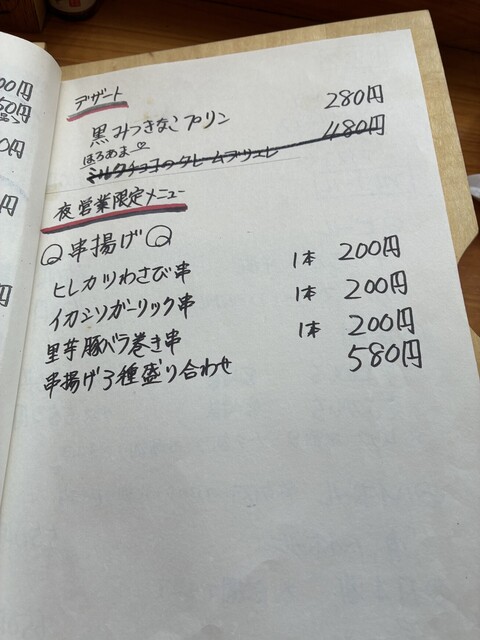 デザート
黒みつきなこプリン 280円
ほろあま♡
ミルクチョコのクレームブリュレ 480円
夜営業限定メニュー
串揚げ
ヒレカツわさび串 1本 200円
イカシソガーリック串 1本 200円
里芋豚バラ巻き串 1本 200円
串揚げ3種盛り合わせ 580円